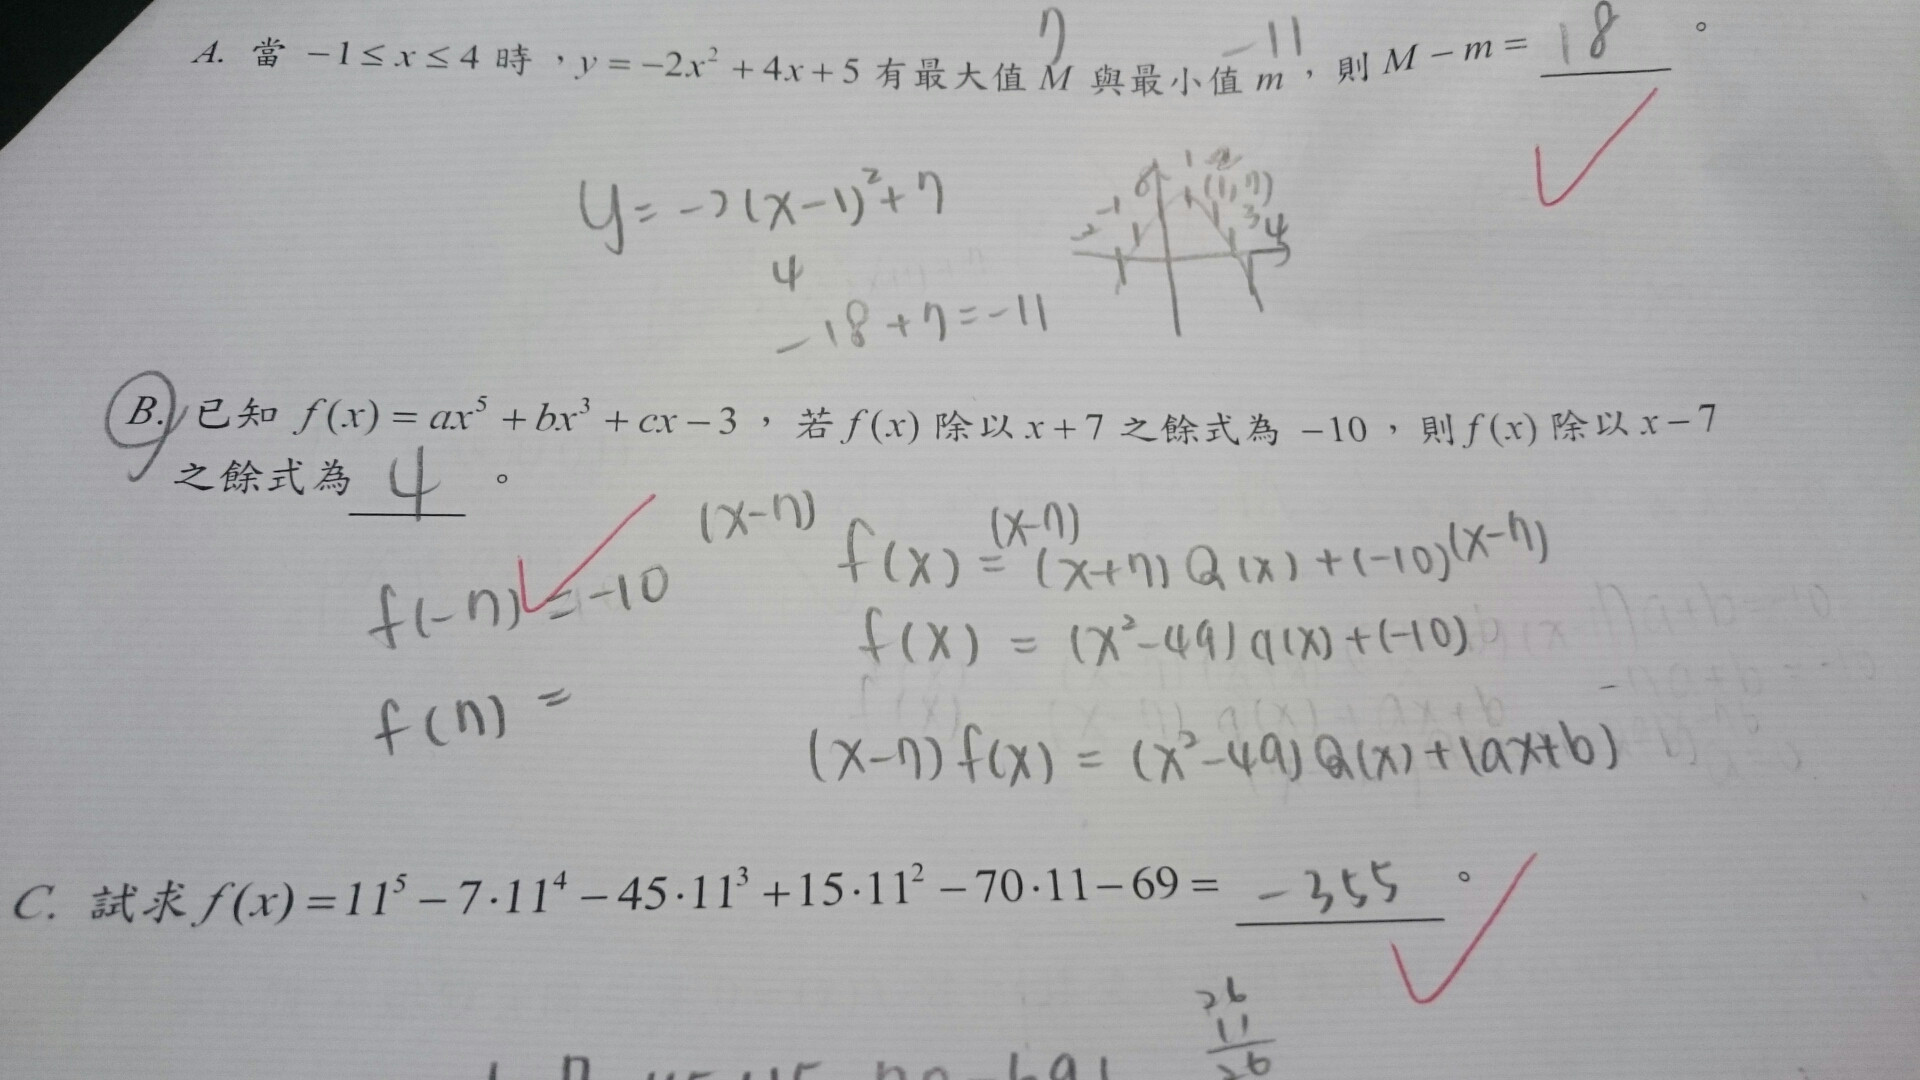 A. 當 −1 ≤ x ≤ 4 時，y = −2x² + 4x + 5 有最大值 M 與最小值 m，則 M − m = 18 。
7
−11
y = −2(x−1)²+7
(1,7)
4
−18+7=−11
B. 已知 f(x) = ax⁵ + bx³ + cx − 3，若 f(x) 除以 x + 7 之餘式為 −10，則 f(x) 除以 x − 7
之餘式為 4 。
(x−7)
(x−7)
f(x) = (x+7) Q(x) + (−10)(x−7)
f(−7) = −10
f(x) = (x²−49) q(x) + (−10)
f(7) =
(x−7) f(x) = (x²−49) Q(x) + (ax+b)
C. 試求 f(x) = 11⁵ − 7·11⁴ − 45·11³ + 15·11² − 70·11 − 69 = −355 。
26
11
26